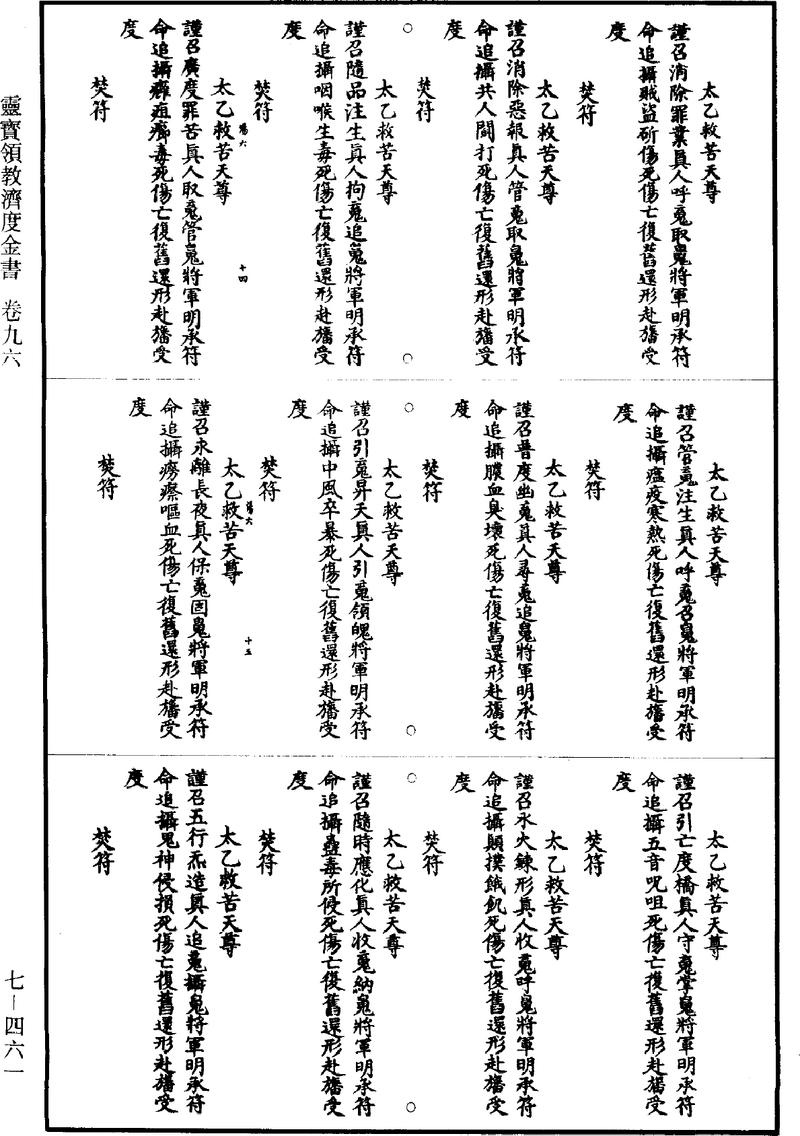 太乙救苦天尊
謹召消除罪業真人呼䰟取䰟將軍明承符
命追攝賊盜斫傷死傷亡復舊還形赴旛受
度
焚符
太乙救苦天尊
謹召消除惡報真人管䰟取䰟將軍明承符
命追攝共人鬪打死傷亡復舊還形赴旛受
度
焚符
太乙救苦天尊
謹召隨品注生真人拘䰟追䰟將軍明承符
命追攝咽喉生毒死傷亡復舊還形赴旛受
度
焚符
十四
太乙救苦天尊
謹召廣度罪苦真人取䰟管䰟將軍明承符
命追攝癰疽癤毒死傷亡復舊還形赴旛受
度
焚符
太乙救苦天尊
謹召管䰟注生真人呼䰟召䰟將軍明承符
命追攝瘟疫寒熱死傷亡復舊還形赴旛受
度
焚符
太乙救苦天尊
謹召普度幽䰟真人尋䰟追䰟將軍明承符
命追攝膿血臭壞死傷亡復舊還形赴旛受
度
焚符
太乙救苦天尊
謹召引䰟昇天真人引䰟領魄將軍明承符
命追攝中風卒暴死傷亡復舊還形赴旛受
度
焚符
十五
太乙救苦天尊
謹召永離長夜真人保䰟固䰟將軍明承符
命追攝癆瘵嘔血死傷亡復舊還形赴旛受
度
焚符
太乙救苦天尊
謹召引亡度橋真人守䰟掌䰟將軍明承符
命追攝五音呪咀死傷亡復舊還形赴旛受
度
焚符
太乙救苦天尊
謹召水火鍊形真人收䰟呼䰟將軍明承符
命追攝顛撲餓飢死傷亡復舊還形赴旛受
度
焚符
太乙救苦天尊
謹召隨時應化真人收䰟納䰟將軍明承符
命追攝蠱毒所侵死傷亡復舊還形赴旛受
度
焚符
太乙救苦天尊
謹召五行炁造真人追䰟攝䰟將軍明承符
命追攝鬼神侵損死傷亡復舊還形赴旛受
度
焚符
靈寶領教濟度金書 卷九六
七－四六一